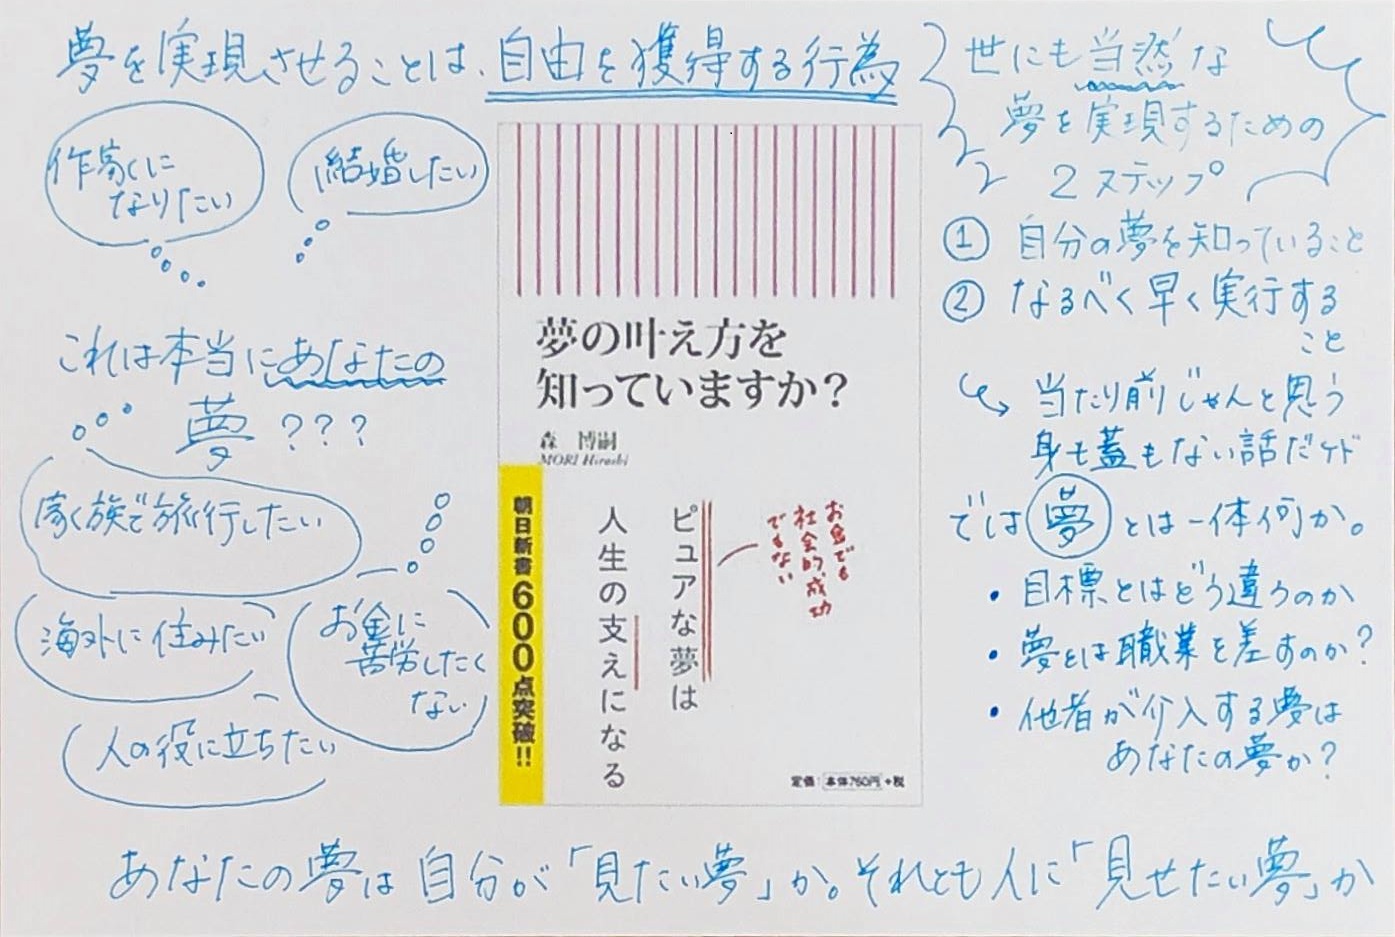 夢を実現させることは、自由を獲得する行為
作家に
なりたい
結婚したい
これは本当にあなたの
夢???
家族で旅行したい
海外に住みたい
お金に
苦労したく
ない
人の役に立ちたい
夢の叶え方を
知っていますか?
森 博嗣
MORI Hiroshi
朝日新書600点突破!!
ピュアな夢は
人生の支えになる
お金でも
社会的成功
でもない
定価:本体760円+税
世にも当然な
夢を実現するための
2ステップ
① 自分の夢を知っていること
② なるべく早く実行する
こと
当たり前じゃんと思う
身も蓋もない話だケド
では夢とは一体何か。
・目標とはどう違うのか
・夢とは職業を差すのか?
・他者が介入する夢は
あなたの夢か?
あなたの夢は自分が「見たい夢」か。それとも人に「見せたい夢」か